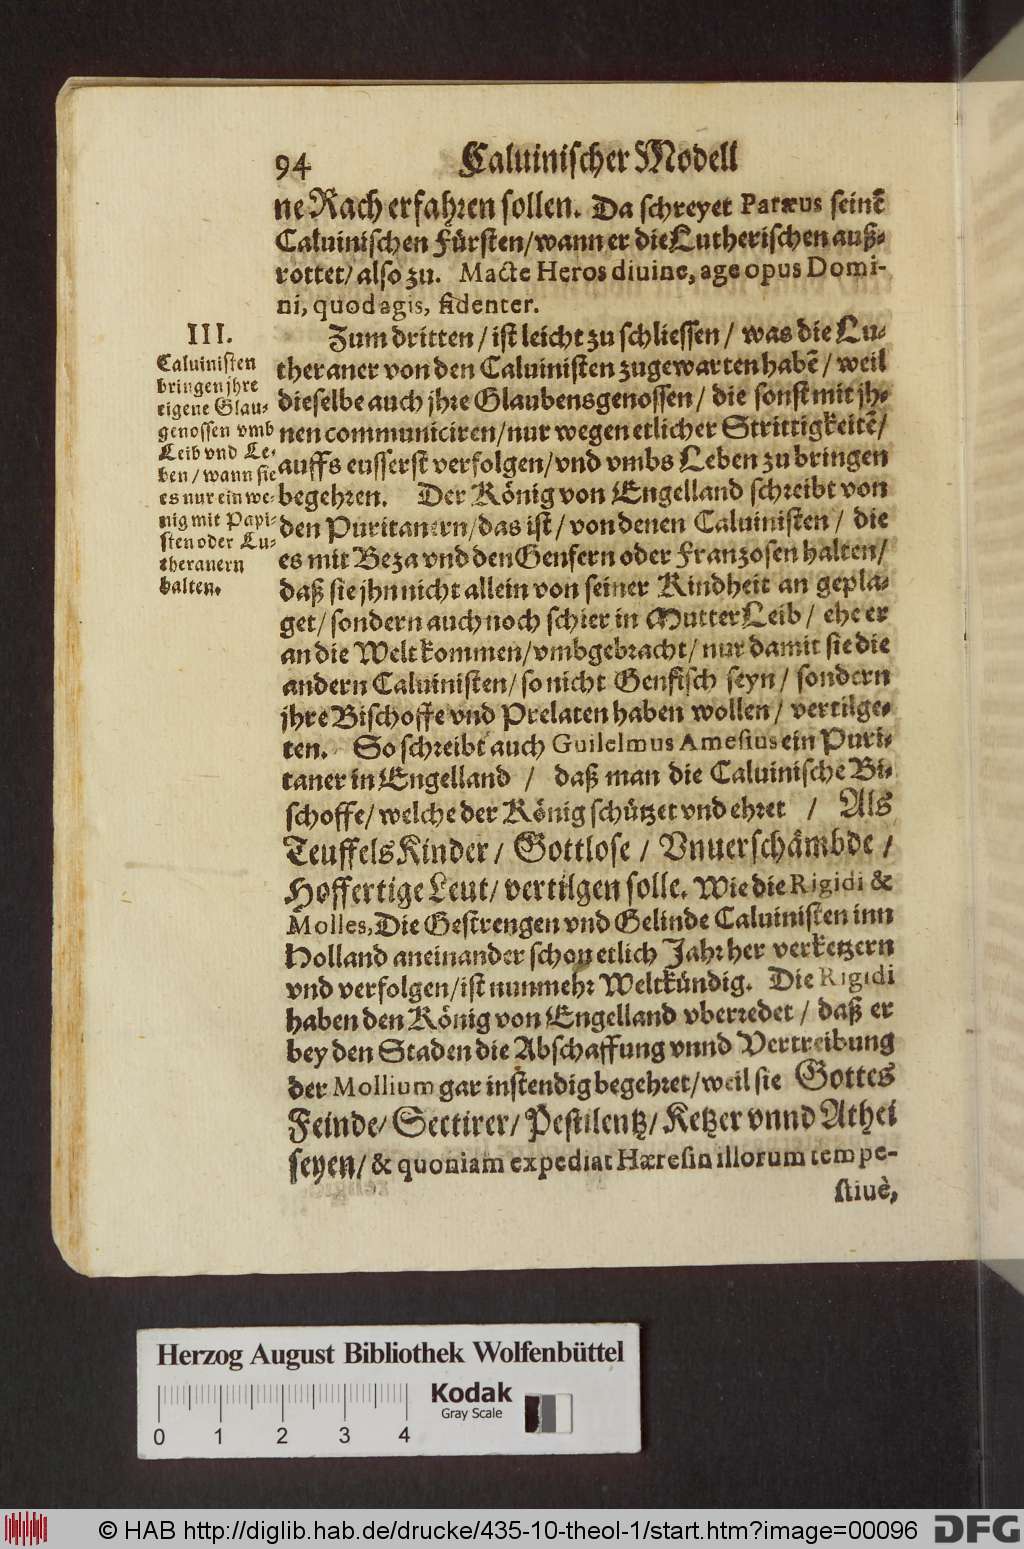 94 Caluinischer Modell
ne Rach erfahren sollen. Da schreyet Paræus seinẽ
Caluinischen Fürsten/ wann er die Lutherischen auß-
rottet/ also zu. Macte Heros diuine, age opus Domi-
ni, quod agis, fidenter.
III.
Caluinisten
bringen jhre
eigene Glau-
genossen vmb
Leib vnd Le-
ben/ wann sie
es nur ein we-
nig mit Papi-
sten oder Lu-
theranern
halten.
Zum dritten/ ist leicht zu schliessen/ was die Lu-
theraner von den Caluinisten zugewarten habẽ/ weil
dieselbe auch jhre Glaubensgenossen/ die sonst mit jh-
nen communiciren/ nur wegen etlicher Strittigkeitẽ/
auffs eusserst verfolgen/ vnd vmbs Leben zu bringen
begehren. Der König von Engelland schreibt von
den Puritanern/ das ist/ von denen Caluinisten/ die
es mit Beza vnd den Genfern oder Franzosen halten/
daß sie jhn nicht allein von seiner Kindheit an gepla-
get/ sondern auch noch schier in Mutter Leib/ ehe er
an die Welt kommen/ vmbgebracht/ nur damit sie die
andern Caluinisten/ so nicht Genfisch seyn/ sondern
jhre Bischoffe vnd Prelaten haben wollen/ vertilge-
ten. So schreibt auch Guilelmus Amesius ein Puri-
taner in Engelland / daß man die Caluinische Bi-
schoffe/ welche der König schützet vnd ehret / Als
Teuffels Kinder/ Gottlose/ Vnuerschämbde/
Hoffertige Leut/ vertilgen solle. Wie die Rigidi &
Molles, Die Gestrengen vnd Gelinde Caluinisten inn
Holland aneinander schon etlich Jahr her verketzern
vnd verfolgen/ ist nunmehr Weltkündig. Die Rigidi
haben den König von Engelland vberredet/ daß er
bey den Staden die Abschaffung vnnd Vertreibung
der Mollium gar instendig begehret/ weil sie Gottes
Feinde/ Sectirer/ Pestilentz/ Ketzer vnnd Athei
seyen/ & quoniam expediat Hæresin illorum tempe-
stiuè,
Herzog August Bibliothek Wolfenbüttel
Kodak
Gray Scale
0 1 2 3 4
© HAB http://diglib.hab.de/drucke/435-10-theol-1/start.htm?image=00096 DFG